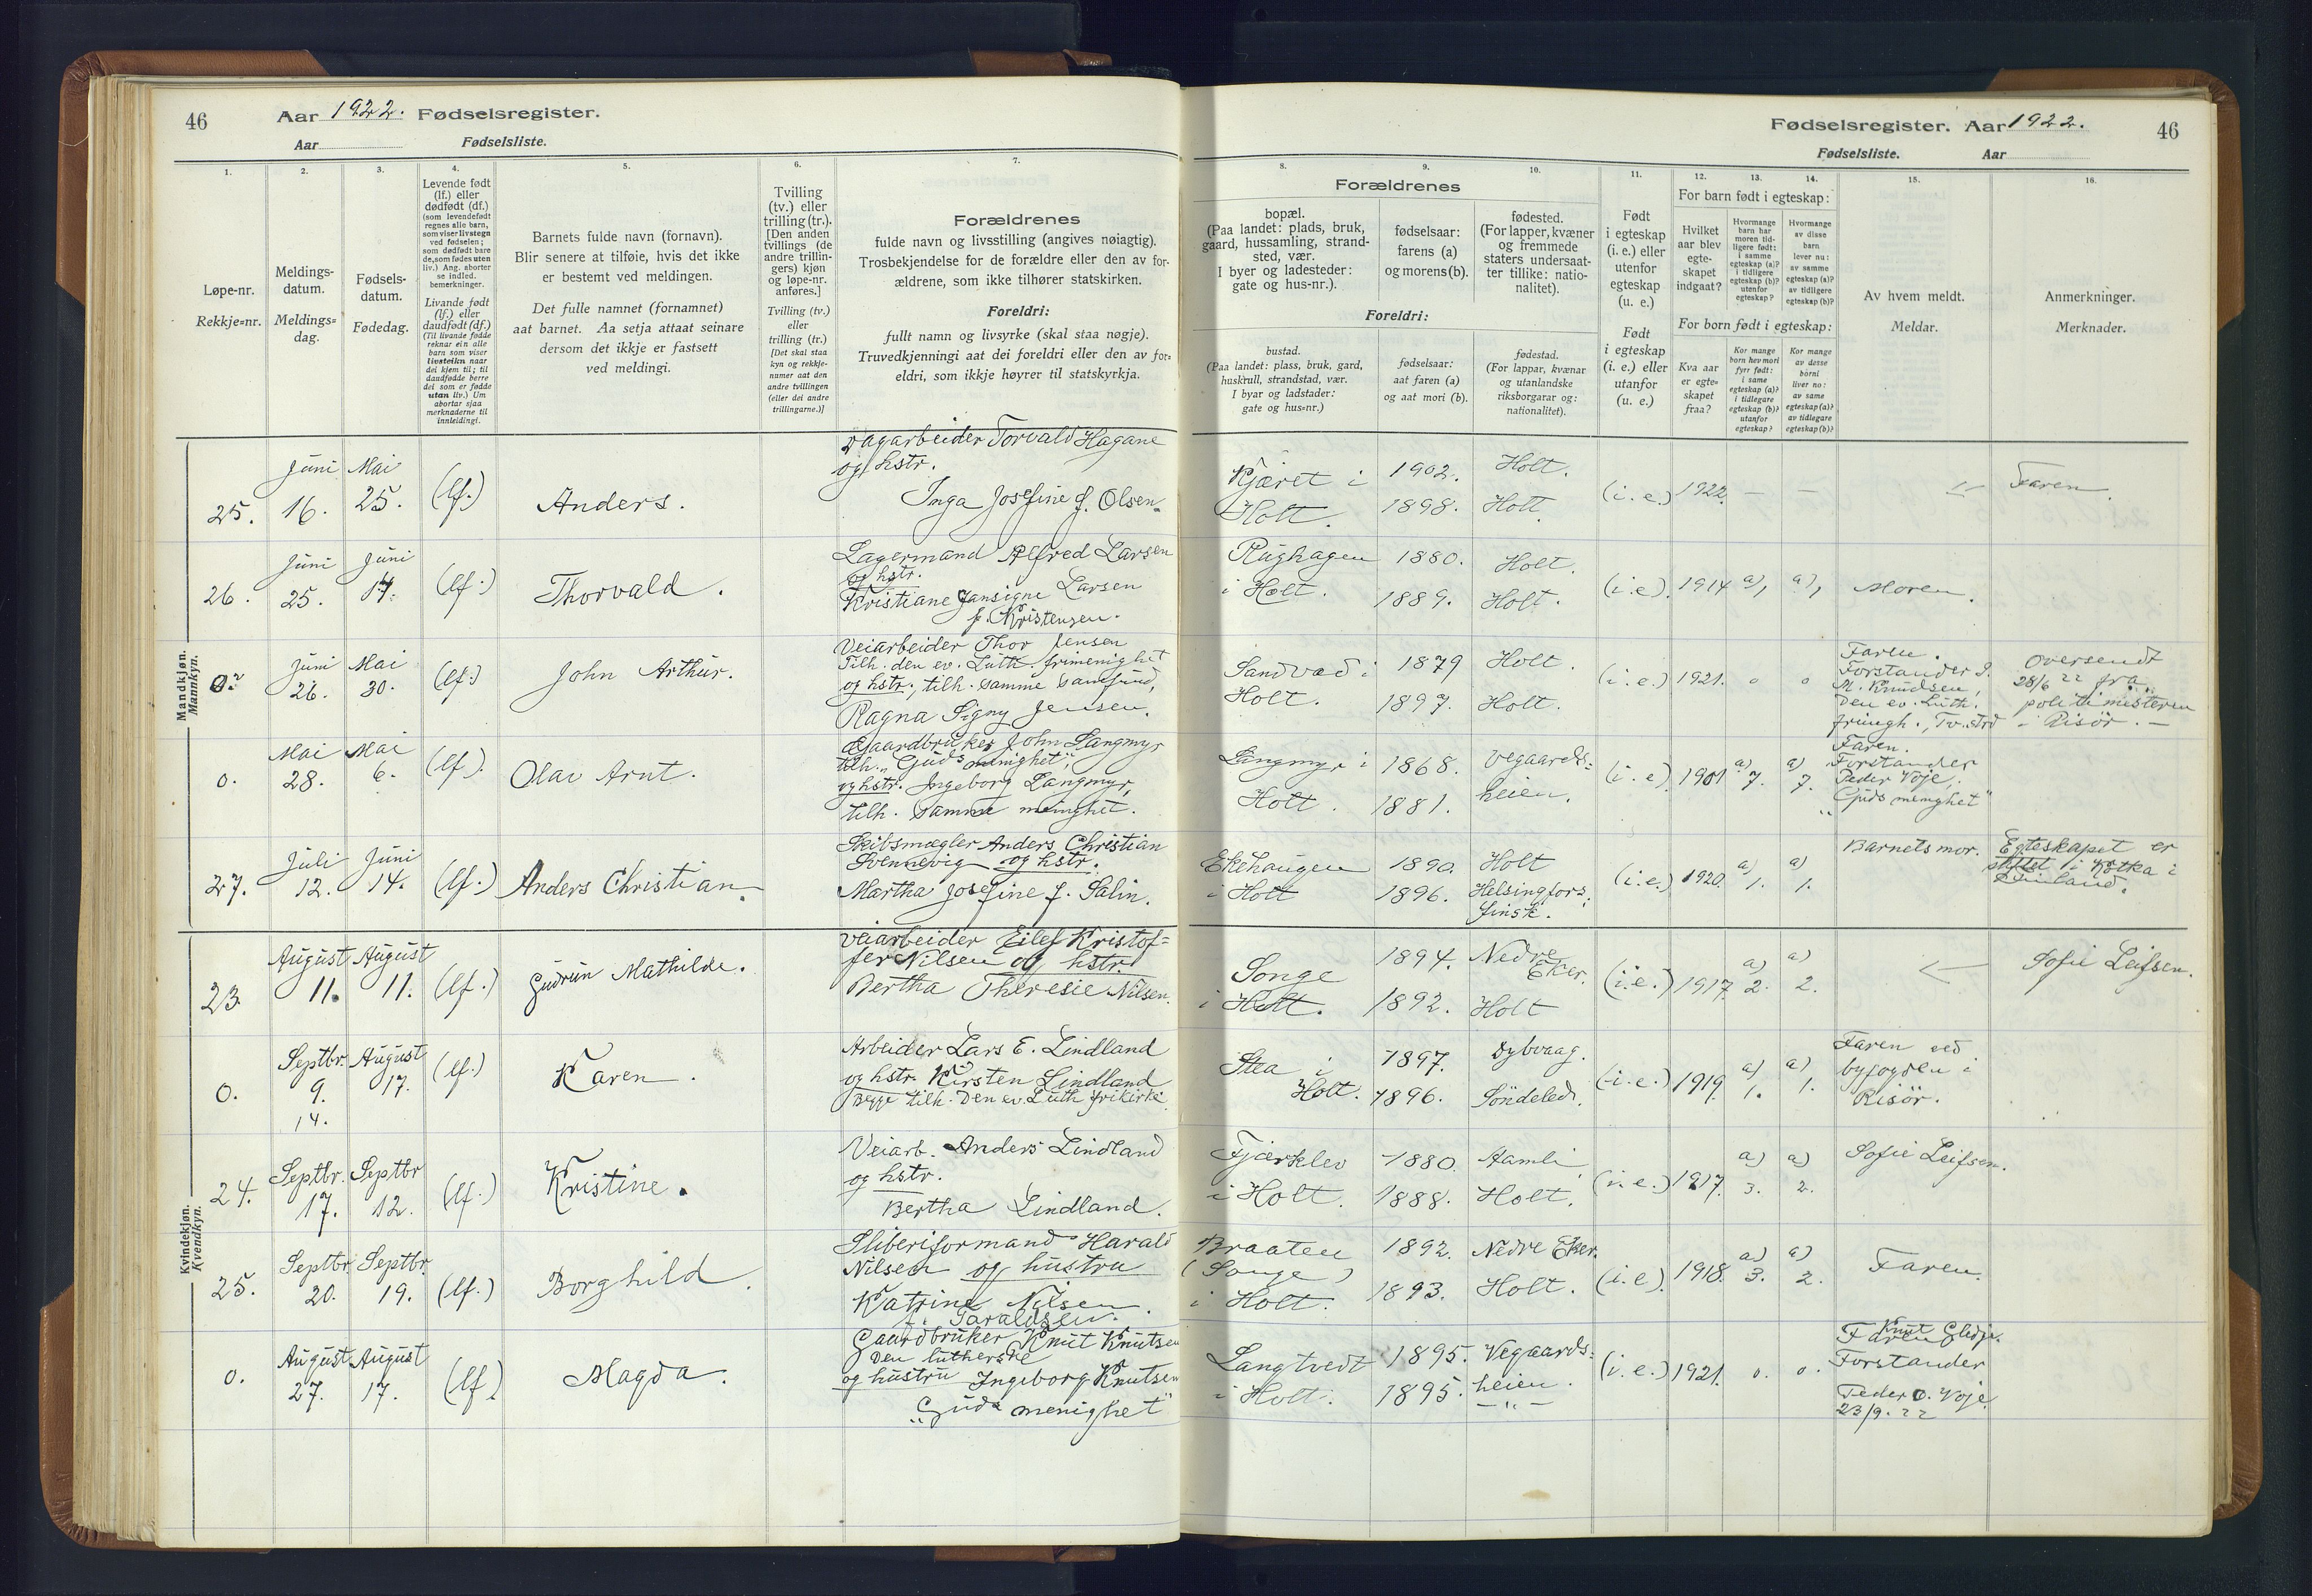 46
Aar 1922. Fødselsregister.
Aar Fødselsliste.
Fødselsregister. Aar 1922.
46
Fødselsliste. Aar
1.
Løpe-nr.
Rekkje=nr.
2.
Meldings-
datum.
Meldings=
dag.
3.
Fødsels-
datum.
Fødedag.
4.
Levende født
(lf.) eller
dødfødt (df.)
(som levendefødt
regnes alle barn,
som viser livstegn
ved fødselen;
som dødfødt bare
de, som fødes uten
liv.) Ang. aborter
se indled.
bemerkninger.
Livande født
(lf.) eller
daudfødt (df.)
(Til livande fødde
reknar ein alle
barn som viser
livsteikn naar
dei kjem til; til
daudfødde berre
dei som er fødde
utan liv.) Um
abortar sjaa
merknaderne til
innleidingi.
5.
Barnets fulde navn (fornavn).
Blir senere at tilføie, hvis det ikke
er bestemt ved meldingen.
Det fulle namnet (fornamnet)
aat barnet. Aa setja attaat seinare
dersom det ikkje er fastsett
ved meldingi.
6.
Tvilling
(tv.) eller
trilling (tr.).
[Den anden
tvillings (de
andre trillin-
gers) kjøn
og løpe-nr.
anføres.]
Tvilling (tv.)
eller
trilling (tr.)
[Det skal staa
kyn og rekkje-
numer aat den
andre tvillingen
(eller dei andre
trillingarne.)]
7.
Forældrenes
fulde navn og livsstilling (angives nøiagtig).
Trosbekjendelse for de forældre eller den av for-
ældrene, som ikke tilhører statskirken.
Foreldri:
fullt namn og livsyrke (skal staa nøgje).
Truvedkjenningi aat dei foreldri eller den av for=
eldri, som ikkje høyrer til statskyrkja.
Forældrenes
8.
bopæl.
(Paa landet: plads, bruk,
gaard, hussamling, strand-
sted, vær.
I byer og ladesteder:
gate og hus-nr.).
9.
fødselsaar:
farens (a)
og morens (b).
10.
fødested.
(For lapper, kvæner
og fremmede
staters undersaat-
ter tillike: natio-
nalitet).
Foreldri:
bustad.
(Paa landet: plass, bruk, gard,
huskrull, strandstad, vær.
I byar og ladstader:
gate og hus=nr.)
fødselsaar:
aat faren (a)
og aat mori (b).
fødestad.
(For lappar, kvænar
og utanlandske
riksborgarar og:
nationalitet).
11.
Født
i egteskap
(i. e.) eller
utenfor
egteskap
(u. e.)
Født
i egteskap
(i. e.) eller
utanfor
(u. e.)
12.
13.
14.
For barn født i egteskap:
Hvilket
aar blev
egte-
skapet
indgaat?
Hvormange
barn har
moren tid-
ligere født:
i samme
egteskap (a)?
i tidligere
egteskap (b)?
utenfor
egteskap?
Hvormange
av disse
barn
lever nu:
av samme
egteskap (a)?
av tidligere
egteskap (b)?
For born født i egteskap:
Kva aar
er egte=
skapet
fraa?
Kor mange
born hev mori
fyrr født:
i same
egteskap (a)?
i tidlegare
egteskap (b)?
utanfor
egteskap?
Kor mange
av desse
borni
liver no:
av same
egteskap (a)?
av tidlegare
egteskap (b)?
15.
Av hvem meldt.
Meldar.
16.
Anmerkninger.
Merknader.
Mandkjøn.
Mannkyn.
25. Juni 16. Mai 25. (lf.) Anders.
Dagarbeider Torvald Hagane
og hstr.
Inga Josefine f. Olsen.
Kjæret i
Holt.
1902.
1898.
Holt.
Holt.
(i.e.) 1922. — —
Faren.
26. Juni 25. Juni 17. (lf.) Thorvald.
Lagermand Alfred Larsen
og hstr.
Kristiane Jansigne Larsen
f. Kristensen.
Rughagen
i Holt.
1880.
1889.
Holt.
Holt.
(i.e). 1914 a), a), Moren.
Juni 26. Mai 30. (lf.) John Arthur.
Veiarbeider Thor Jensen
Tilh. den ev. Luth. frimenighet
og hstr., tilh. samme samfund,
Ragna Signy Jensen.
Sandvad i
Holt.
1879
1897.
Holt.
Holt.
(i.e.) 1921. o o
Faren.
Forstander
M. Knudsen,
Den ev. Luth.
Oversendt
28/6 22 fra
politimesteren
i Risör. —
0. Mai 28. Mai 6. (lf). Olav Arnt.
Gaardbruker John Langmyr
tilh. "Guds menighet",
og hstr. Ingeborg Langmyr,
tilh. samme menighet.
Langmyr i
Holt.
1868.
1881.
Vegaards=
heien.
(i.e) 1901 a) 7. a) 7.
Faren.
Forstander
Peder Voje,
"Guds menighet"
27. Juli 12. Juni 14. (lf.) Anders Christian.
Skibsmægler Anders Christian
Svennevig og hstr.
Martha Josefine f. Salin.
Ekehaugen
i Holt
1890.
1896.
Holt
Helsingfors.
finsk.
(i.e.) 1920. a) 1. a) 1.
Barnets mor.
Egteskapet er
stiftet i Kotka i
Finland.
Kvindekjøn.
Kvendkyn.
23. August 11. August 11. (lf.) Gudrun Mathilde.
Veiarbeider Eilef Kristof=
fer Nilsen og hstr.
Bertha Theresie Nilsen.
Songe
i Holt.
1894.
1892.
Nedre
Eker.
Holt
(i.e.) 1917. a) 2. a) 2.
Sofie Leifsen.
0. Septbr. 9. 14. August 17. (lf.) Karen.
Arbeider Lars E. Lindland
og hstr. Kirsten Lindland
Begge tilh. Den ev. Luth frikirke.
Stea i
Holt.
1897.
1896.
Dybvaag.
Söndeled.
(i.e.) 1919. a) 1. a) 1.
Faren ved
byfogden i
Risör.
24. Septbr. 17. Septbr 12. (lf.) Kristine.
Veiarb. Anders Lindland
og hstr.
Bertha Lindland.
Fjærklev
i Holt.
1880.
1888.
Aamli
Holt.
(i.e.) 1917. a) 3. a) 2.
Sofie Leifsen.
25. Septbr 20. Septbr. 19. (lf.) Borghild.
Sliberiformand Harald
Nilsen og hustru
Katrine Nilsen.
f. Taraldsen.
Braaten
(Songe)
i Holt.
1892.
1893.
Nedre Eker.
Holt.
(i.e). 1918. a) 3. a) 2.
Faren.
0. August 27. August 17. (lf.) Magda.
Gaardbruker Knut Knutsen
Den lutherske
og hustru Ingeborg Knutsen
"Guds menighet"
Langtvedt
i Holt.
1895.
1895.
Vegaards=
heien.
— " —
(i.e.) 1921. o. o.
Faren Knut
Forstander
Peder O. Voje
23/9. 22